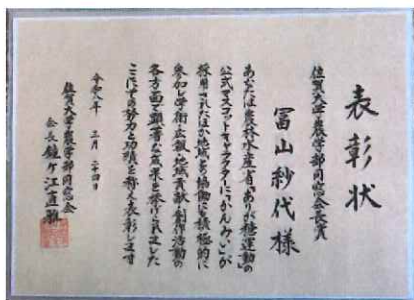 表彰状
佐賀大学農学部同窓会長賞
冨山紗代様
あなたは農林水産省「ありが穂運動」の
公式マスコットキャラクターに「かんみぃ」が
採用されたほか地域との協働にも積極的に
参加し学術・広報・地域貢献・創作活動の
各方面で顕著な成果を挙げられました
ここにその努力と功績を称え表彰します
令和八年 三月 二十四日
佐賀大学農学部同窓会
会長 鐘ヶ江